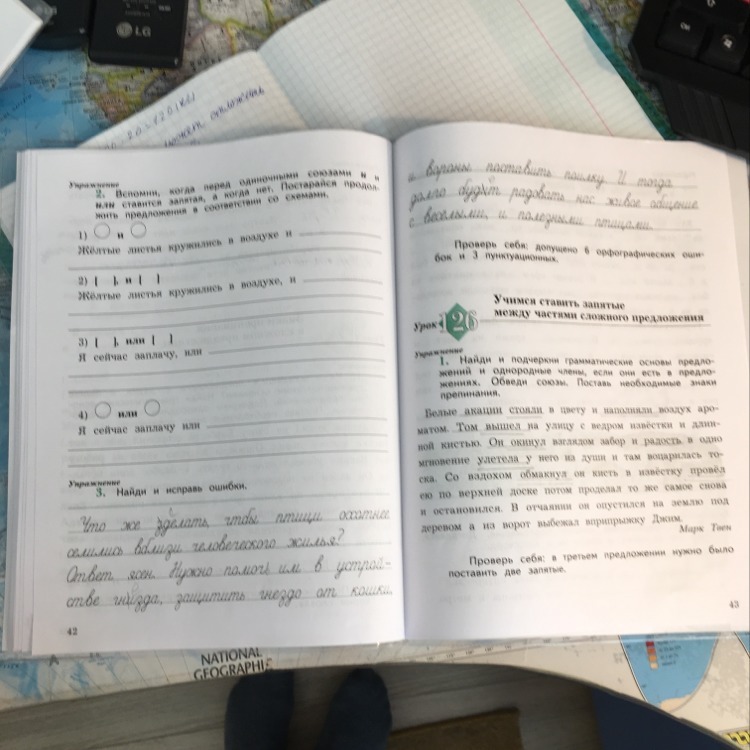 LG
Упражнение
2. Вспомни, когда перед одиночными союзами и и
или ставится запятая, а когда нет. Постарайся продол-
жить предложения в соответствии со схемами.
1) и
Жёлтые листья кружились в воздухе и
2) [ ], и [ ]
Жёлтые листья кружились в воздухе, и
3) [ ], или [ ]
Я сейчас заплачу, или
4) или
Я сейчас заплачу или
Упражнение
3. Найди и исправь ошибки.
Что же зделать, чтобы птицы
селились вблизи человеческого жилья?
Ответ ясен. Нужно помочь им в устрой-
стве гнизда, защитить гнездо от кошки,
42
и вароны поставить поилку. И тогда
долго будит радовать нас живое общение
с весёлыми, и полезными птицами.
Проверь себя: допущено 6 орфографических оши-
бок и 3 пунктуационных.
Урок 126
Учимся ставить запятые
между частями сложного предложения
Упражнение
1. Найди и подчеркни грамматические основы предло-
жений и однородные члены, если они есть в предло-
жениях. Обведи союзы. Поставь необходимые знаки
препинания.
Белые акации стояли в цвету и наполняли воздух аро-
матом. Том вышел на улицу с ведром извёстки и длин-
ной кистью. Он окинул взглядом забор и радость в одно
мгновение улетела у него из души и там воцарилась то-
ска. Со вздохом обмакнул он кисть в извёстку провёл
ею по верхней доске потом проделал то же самое снова
и остановился. В отчаянии он опустился на землю под
деревом а из ворот выбежал вприпрыжку Джим.
Марк Твен
Проверь себя: в третьем предложении нужно было
поставить две запятые.
43
NATIONAL
GEOGRAPHIC